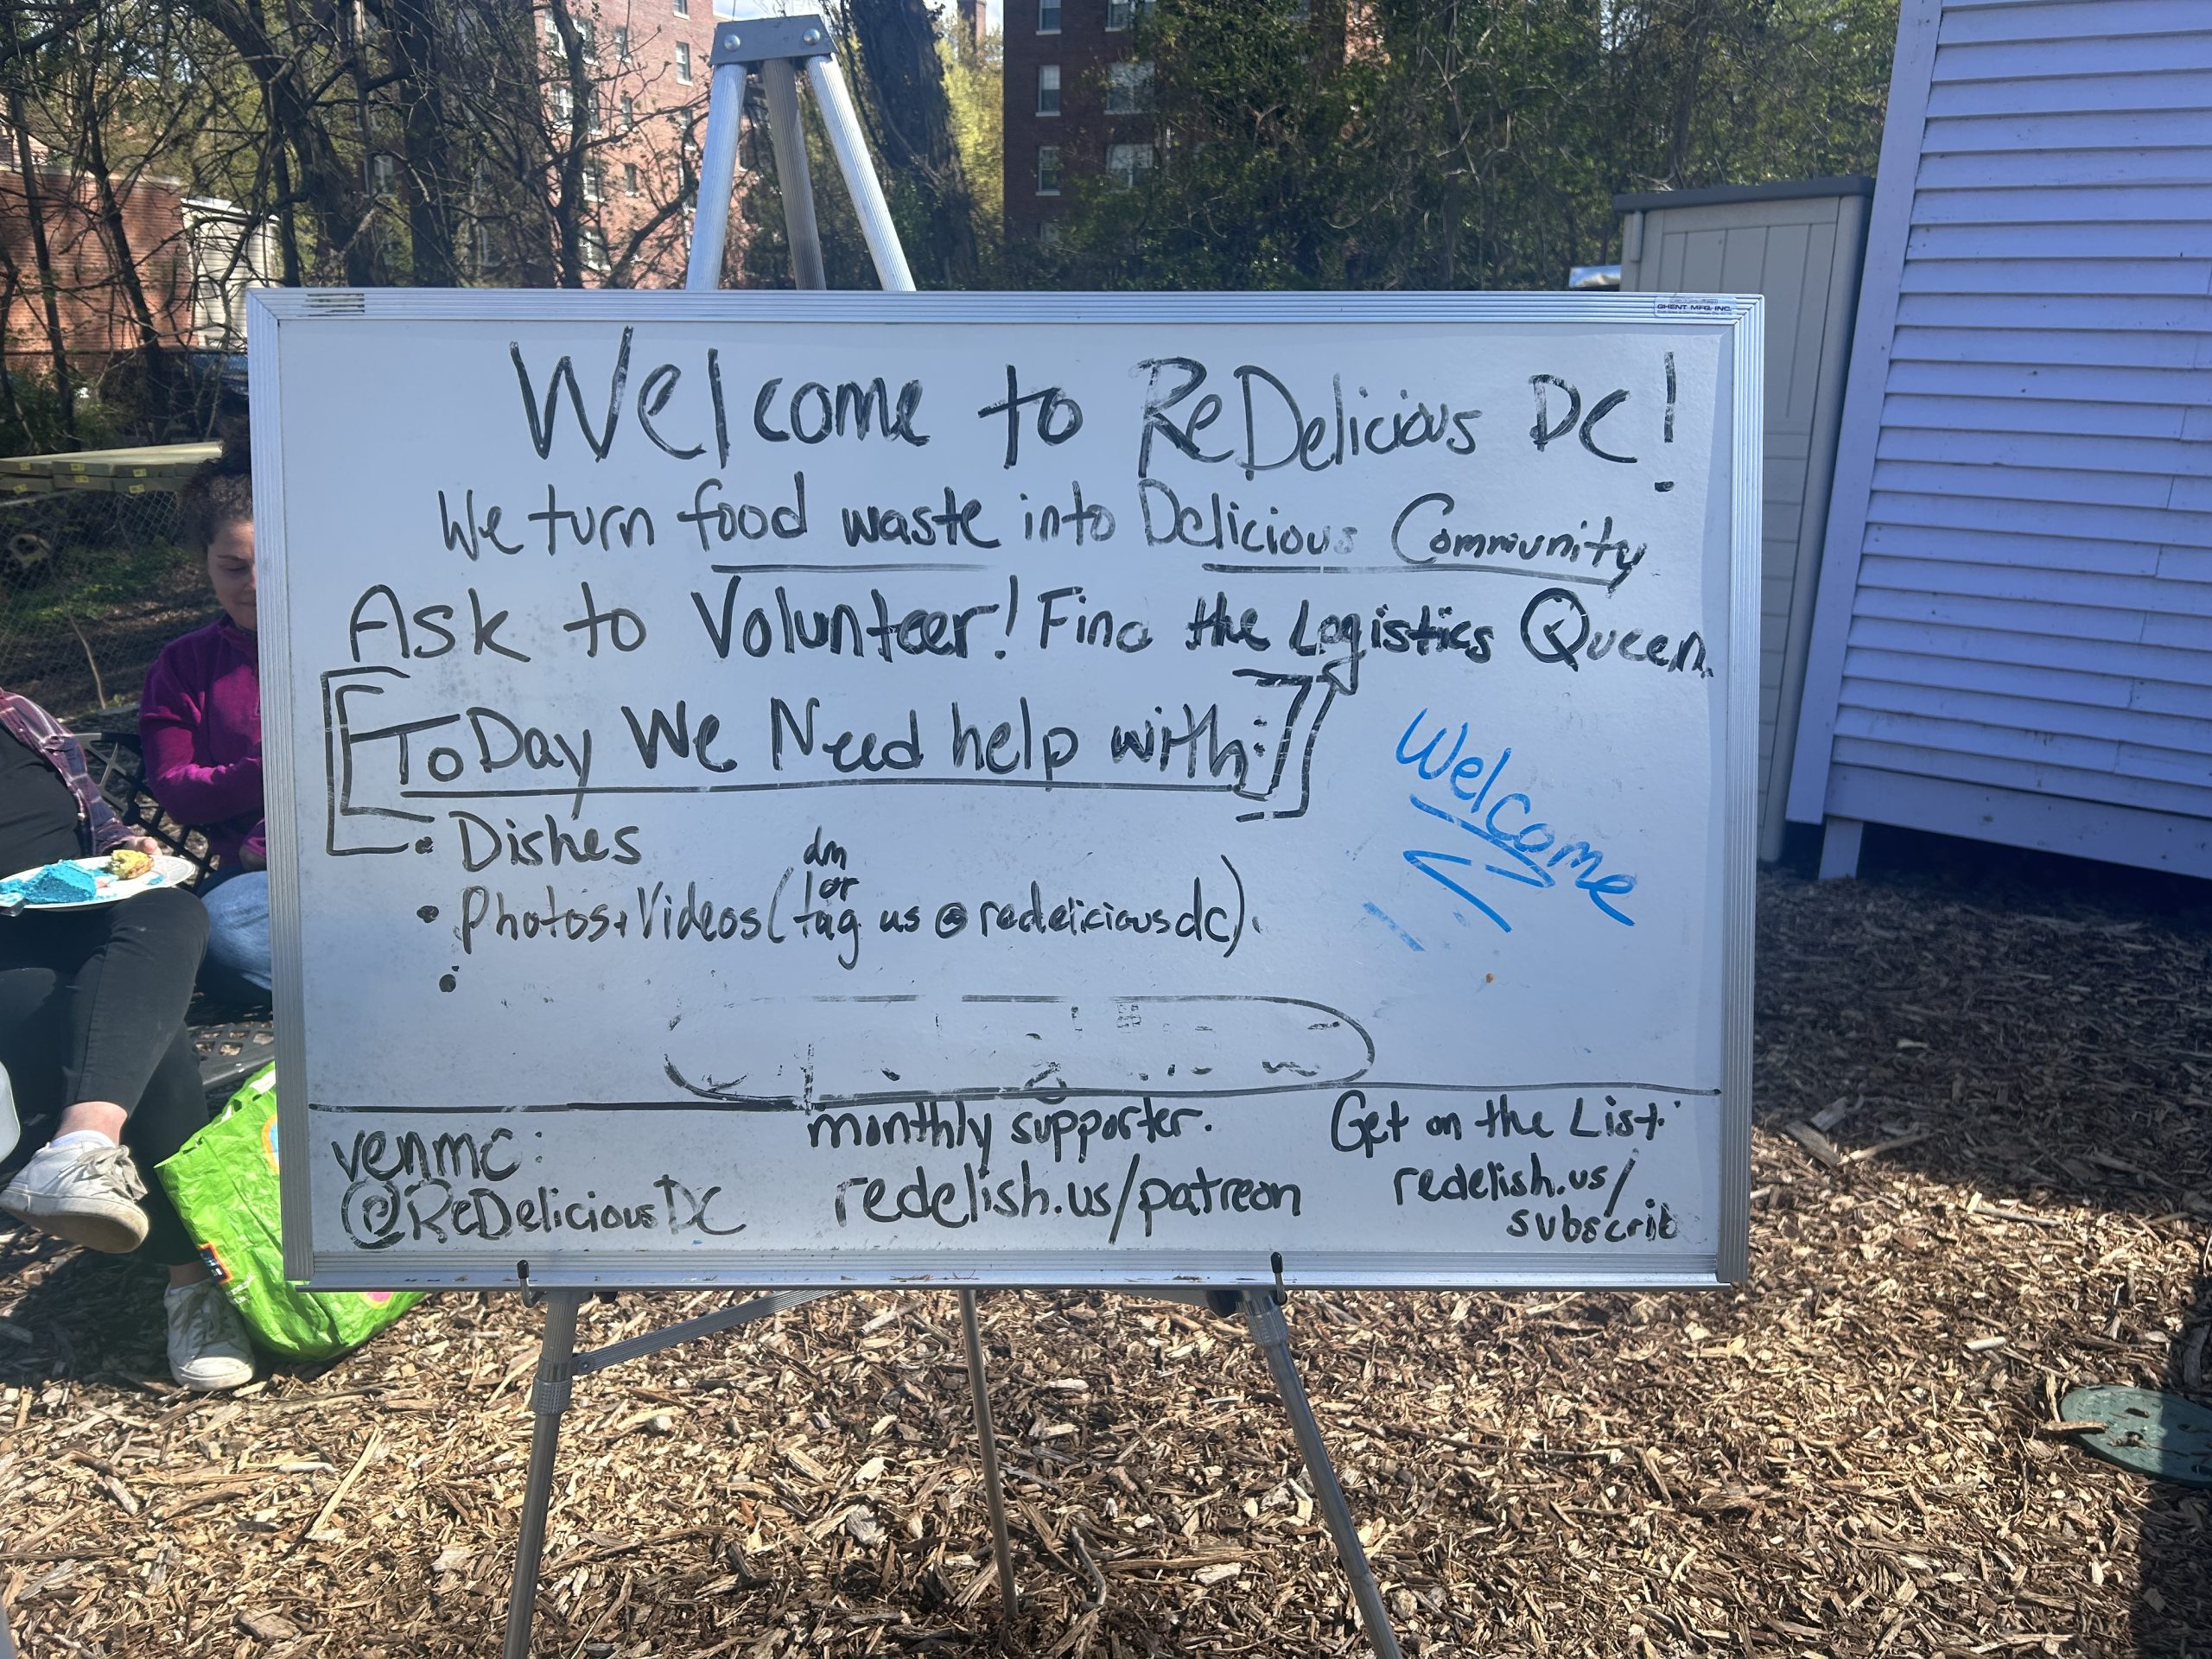 GHENT MFG, INC.
Welcome to ReDelicious DC!
We turn food waste into Delicious Community
Ask to Volunteer! Find the Logistics Queen.
ToDay We Need help with:
Welcome
• Dishes
dm
or
• Photos + Videos (tag us @redeliciousdc).
•
venmo:
@ReDeliciousDC
monthly supporter.
redelish.us/patreon
Get on the List:
redelish.us/
subscrib